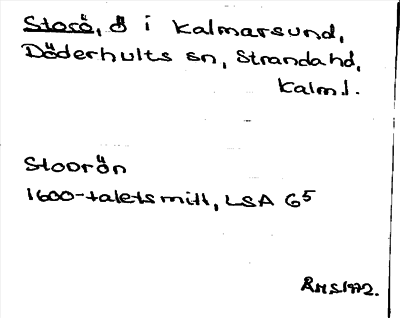 Storö, ö i Kalmarsund,
Döderhults sn, Stranda hd,
Kalm.l.
Stoorön
1600-talets mitt, LSA G5
ÅHS1972.